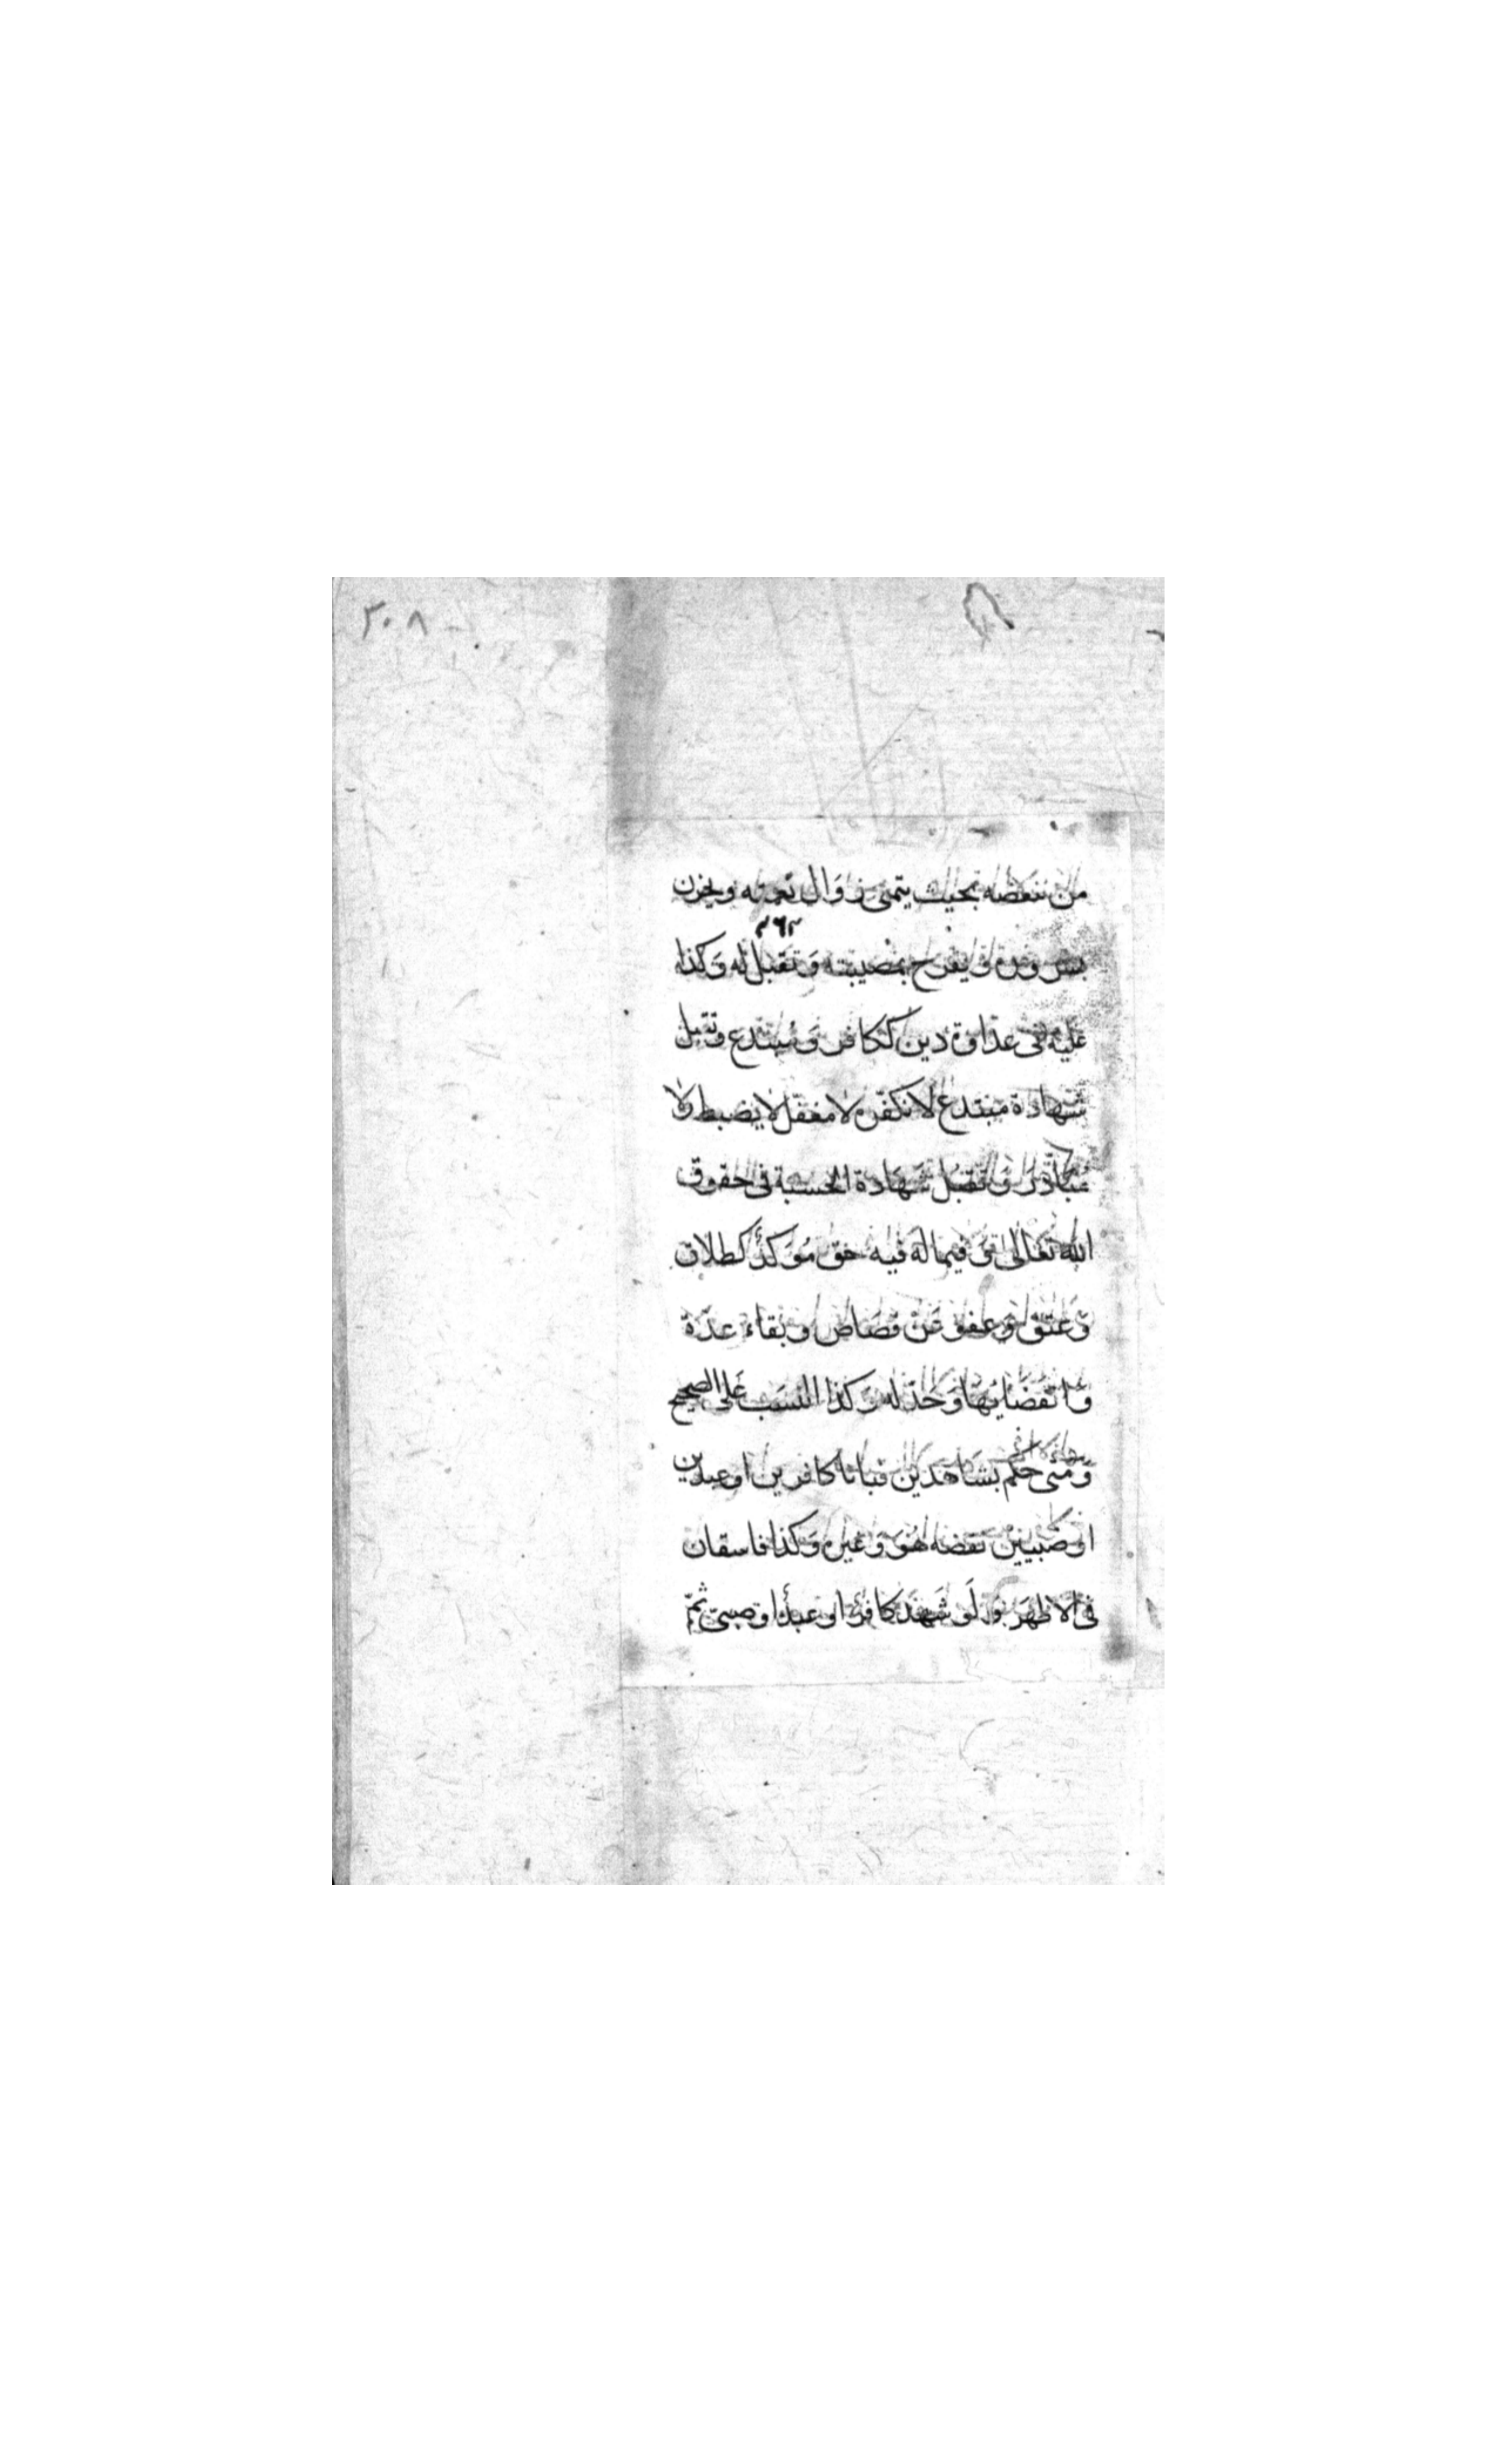 ٣٠٨
من يبغضه بحيث يتمنى زوال نعمته ويحزن
٣٦٢
بسروره ويفرح بمصيبته وَتقبل له وَكذا
عليه فى عداوة دين ككافر وَمُبتدع وتقبل
شهادة مبتدع لا نكفره لا مغفل لا يضبط ولا
مبادر وَتقبل شَهَادة الحسبة فى حقوق
الله تعَالى وَفيما له فيه حق مُؤكد كطلاق
وَعتق وَعفو عَن قصَاص وبقاء عدّة
وَانقضايهَا وَحدّ له وَكذا النسَب عَلى الصحيح
وَمتى حكم بشَاهدَين فبانا كافرين او عبدين
او صَبيين نقضه هُوَ وَغيره وَكذا فاسقان
فى الاظهَر وَلَو شَهدَ كافر او عبد او صبىّ ثمّ